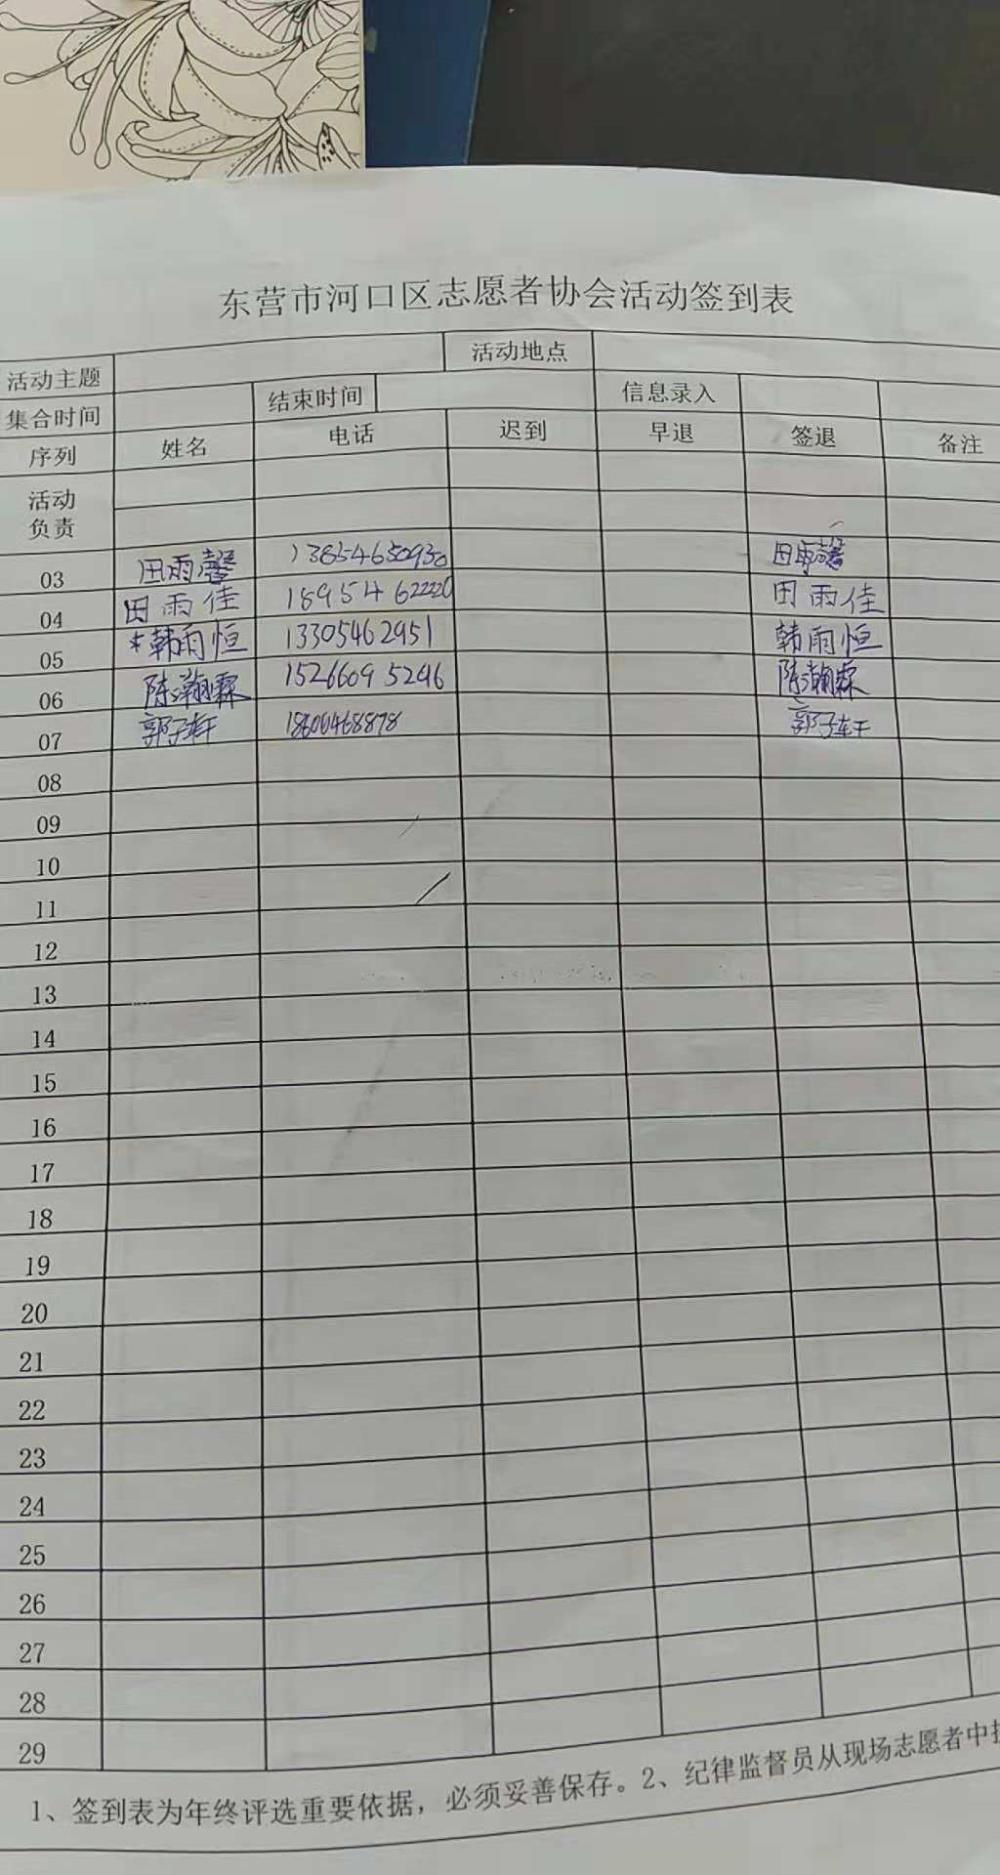 东营市河口区志愿者协会活动签到表
活动主题 活动地点
集合时间 结束时间 信息录入
序列 姓名 电话 迟到 早退 签退 备注
活动
负责
03 田雨馨 13854650930 田雨馨
04 田雨佳 18954622220 田雨佳
05 *韩雨恒 13305462951 韩雨恒
06 陈瀚霖 15266095246 陈瀚霖
07 郭子轩 郭子轩
08
09
10
11
12
13
14
15
16
17
18
19
20
21
22
23
24
25
26
27
28
29
1、签到表为年终评选重要依据，必须妥善保存。2、纪律监督员从现场志愿者中